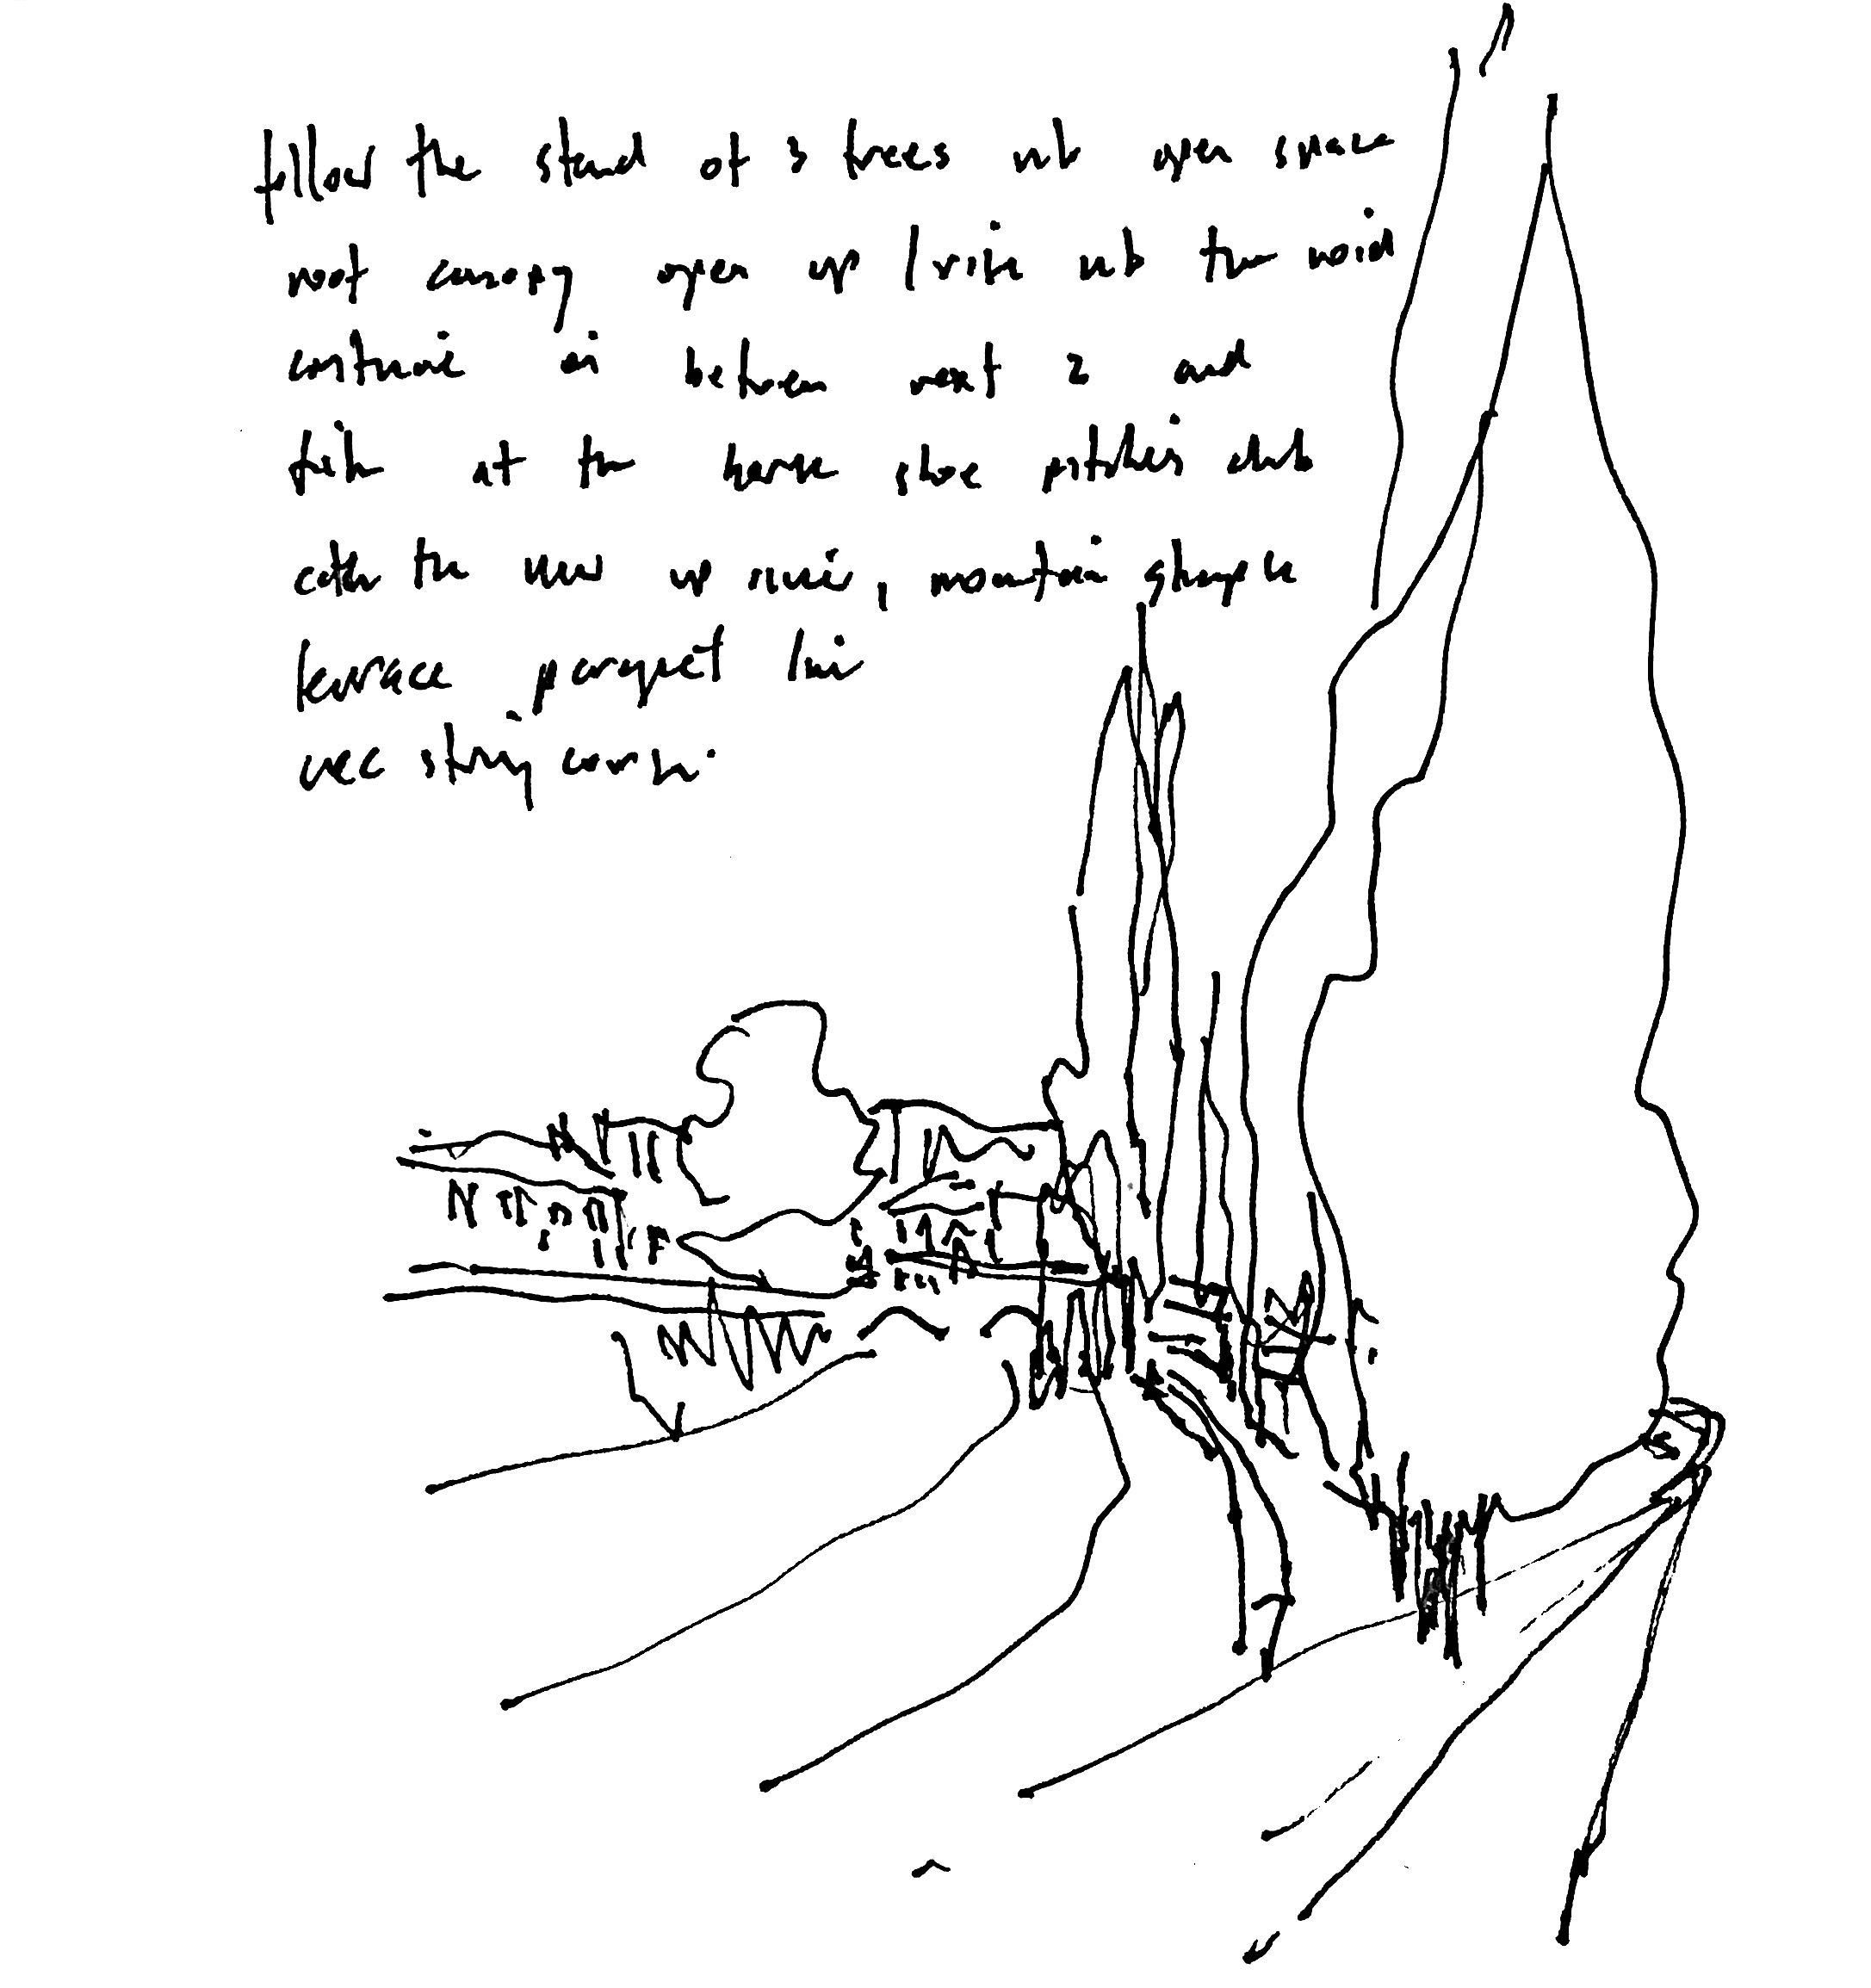 follow the stand of 3 trees into open space
roof canopy open up / rise into the void
continue in between next 2 and
finish at the horse shoe pitches club
catch the view up river, mountain glimpse
terrace parapet line
rec string